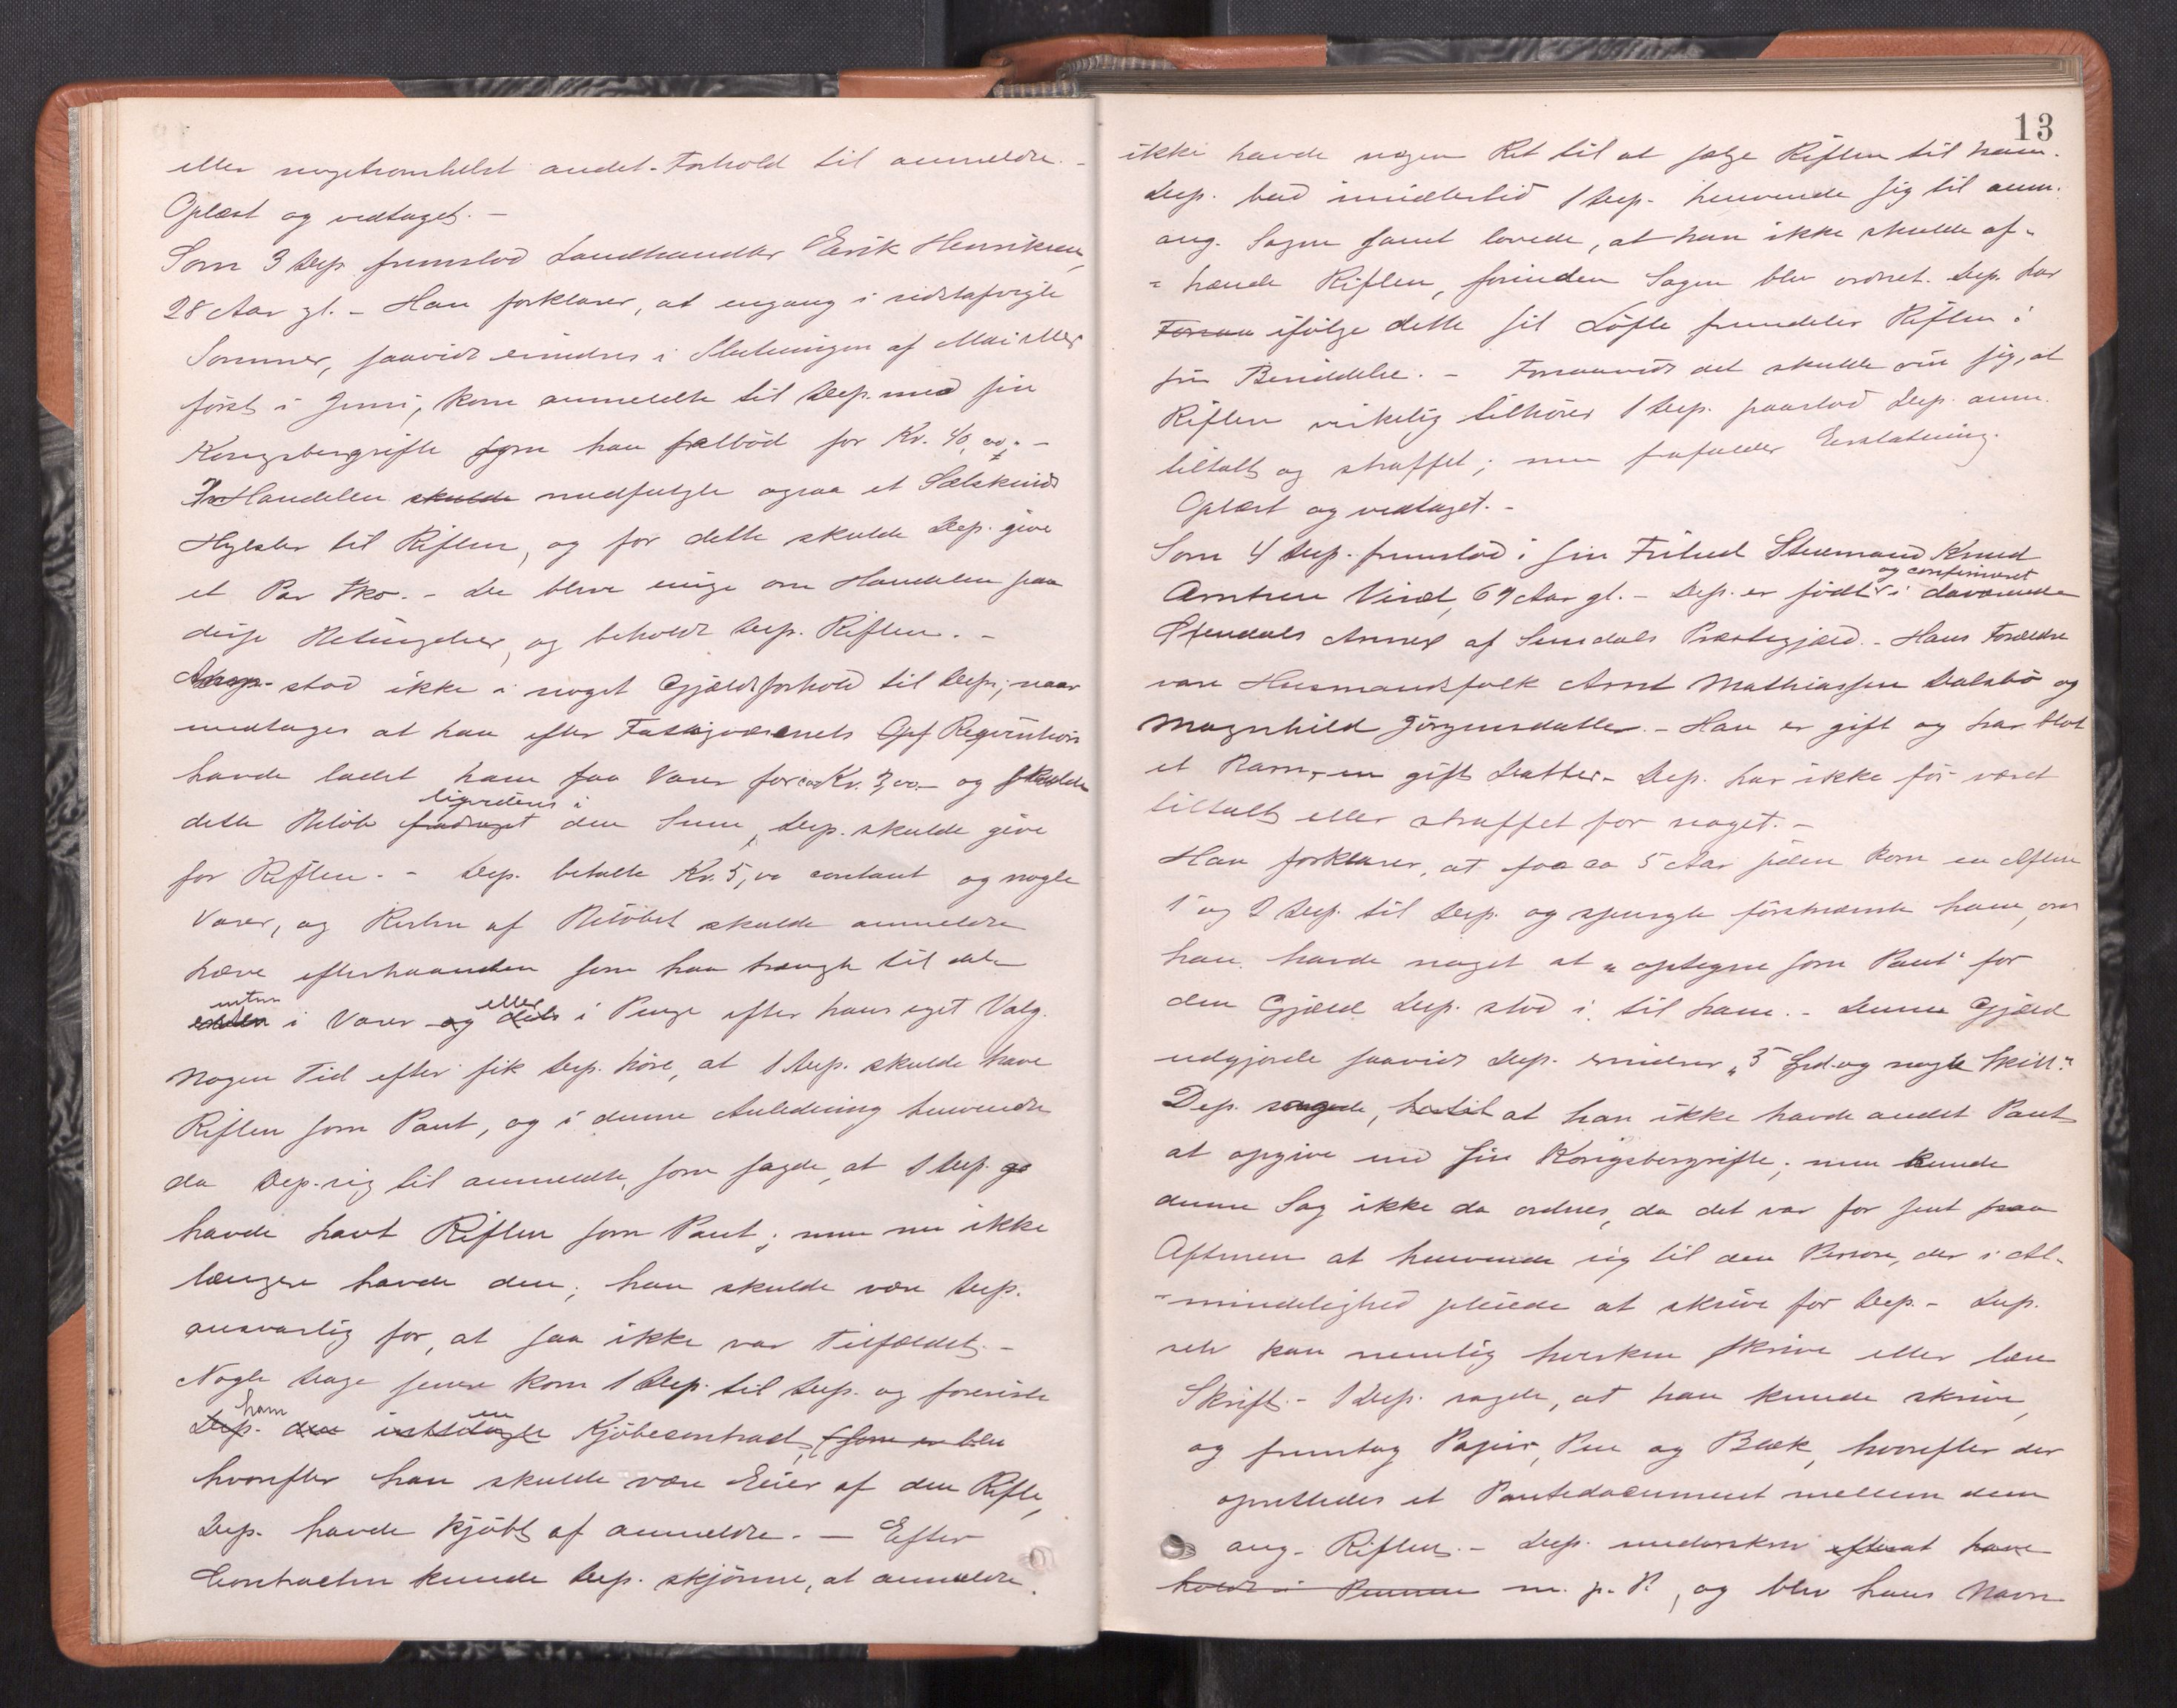 eller nogetsomhelst andet Forhold til anmeldte. -
Oplæst og vedtaget. -
Som 3 Dep. fremstod Landhandler Eirik Henriksen,
28 Aar gl. - Han forklarer, at engang i sidstafvigte
Sommer, saavidt erindres i Slutningen af Mai eller
først i Juni, kom anmeldte til Dep. med sin
Kongsbergrifle som han falbød for Kr. 40,00. -
Handelen skulde medfulgte ogsaa et Sælskinds
Hylster til Riflen, og for dette skulde Dep. give
et Par Sko. - De bleve enige om Handelen paa
disse Betingelser, og beholdt Dep. Riflen. -
Anm. stod ikke i noget Gjældsforhold til Dep., naar
undtages at han efter Fattigvæsenets Requisition
havde ladet ham faa Varer for ca Kr. 3,00 - og skulde
ligvideres i
dette Beløb fradraget den Sum, Dep. skulde give
for Riflen. - Dep. betalte Kr. 5,00 contant og nogle
Varer, og Resten af Beløbet skulde anmeldte
hæve efterhaanden som han trængte til det
enten eller
i Varer og dels i Penge efter hans eget Valg.
Nogen Tid efter fik Dep. høre, at 1 Dep. skulde have
Riflen som Pant, og i denne Anledning henvendte
da Dep. sig til anmeldte, som sagde, at 1 Dep.
havde havt Riflen som Pant; men nu ikke
længere havde den; han skulde være Dep.
ansvarlig for, at saa ikke var Tilfældet. -
Nogle Dage senere kom 1 Dep. til Dep. og foreviste
ham en
Dep. den Kjøbecontract, (som er blev
hvorefter han skulde være Eier af den Rifle,
Dep. havde kjøbt af anmeldte. - Efter
Contracten kunde Dep. skjønne, at anmeldte
13
ikke havde nogen Ret til at sælge Riflen til ham.
Dep. bad imidlertid 1 Dep. henvende sig til anm.
ang. Sagen samt lovede, at han ikke skulde af-
= hænde Riflen, forinden Sagen blev ordnet. Dep. har
ifølge dette sit Løfte fremdeles Riflen i
sin Besiddelse. - Forsaavidt det skulde vise sig, at
Riflen virkelig tilhører 1 Dep. paastod Dep. anm.
tiltalt og straffet; men frafalder Erstatning.
Oplæst og vedtaget. -
Som 4 Dep. fremstod i sin Frihed Strandmand Knud
og confirmeret
Arntsen Vinæs, 69 Aar gl. - Dep. er født i daværende
Annex af Præstegjæld. - Hans Forældre
vare Husmandsfolk Arnt Mathiassen Dalsbø og
Magnhild Jørgensdatter. - Han er gift og har blot
et Barn, en gift Datter. - Dep. har ikke før været
tiltalt eller straffet for noget. -
Han forklarer, at for ca 5 Aar siden kom en Aften
1 og 2 Dep. til Dep. og spurgte førstnævnte ham, om
han havde noget at "optegne som Pant" for
den Gjæld Dep. stod i til ham. - Denne Gjæld
udgjorde saavidt Dep. erindrer "5 Spd. og nogle Skill."
Dep. sagde, hertil at han ikke havde andet Pant
at opgive end sin Kongsbergrifle; men kunde
denne Sag ikke da ordnes, da det var for sent paa
Aftenen at henvende sig til den Person, der i Al-
=mindelighed pleiede at skrive for Dep. - Dep.
selv kan nemlig hverken skrive eller læse
Skrift. - 1 Dep. sagde, at han kunde skrive,
og fremtog Papir, Pen og Blæk, hvorefter der
oprettedes et Pantedocument mellem dem
ang. Riflen. - Dep. underskrev efterat have
holdt i Pennen m. p. P., og blev hans Navn